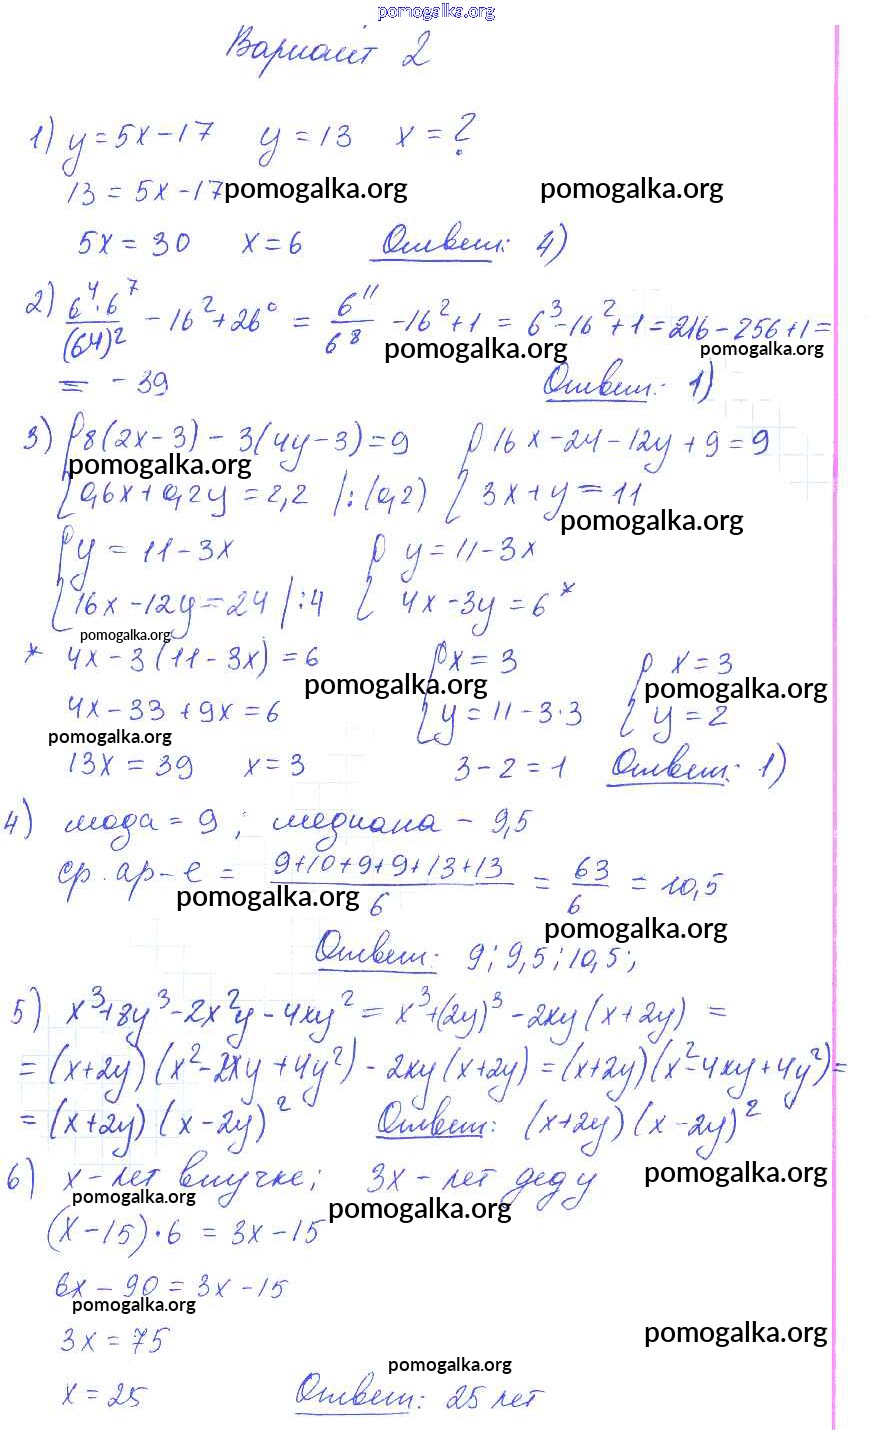 pomogalka.org
Вариант 2
1) y = 5x - 17 y = 13 x = ?
13 = 5x - 17 pomogalka.org pomogalka.org
5x = 30 x = 6 Ответ: 4)
2) (6⁴·6⁷)/(6⁴)² - 16² + 26⁰ = 6¹¹/6⁸ - 16² + 1 = 6³ - 16² + 1 = 216 - 256 + 1 =
pomogalka.org pomogalka.org
= - 39 Ответ: 1)
3) { 8(2x - 3) - 3(4y - 3) = 9 { 16x - 24 - 12y + 9 = 9
pomogalka.org
0,6x + 0,2y = 2,2 |:(0,2) 3x + y = 11
pomogalka.org
{ y = 11 - 3x { y = 11 - 3x
16x - 12y = 24 |:4 4x - 3y = 6*
pomogalka.org
* 4x - 3(11 - 3x) = 6 { x = 3 { x = 3
pomogalka.org pomogalka.org
4x - 33 + 9x = 6 y = 11 - 3·3 y = 2
pomogalka.org
13x = 39 x = 3 3 - 2 = 1 Ответ: 1)
4) мода = 9; медиана - 9,5
ср. ар-е = (9+10+9+9+13+13)/6 = 63/6 = 10,5
pomogalka.org
pomogalka.org
Ответ: 9; 9,5; 10,5;
5) x³ + 8y³ - 2x²y - 4xy² = x³ + (2y)³ - 2xy(x + 2y) =
= (x+2y)(x² - 2xy + 4y²) - 2xy(x+2y) = (x+2y)(x² - 4xy + 4y²) =
= (x+2y)(x - 2y)² Ответ: (x+2y)(x - 2y)²
6) x - лет внучке; 3x - лет деду pomogalka.org
pomogalka.org pomogalka.org
(x - 15)·6 = 3x - 15
6x - 90 = 3x - 15
pomogalka.org
3x = 75 pomogalka.org
pomogalka.org
x = 25 Ответ: 25 лет